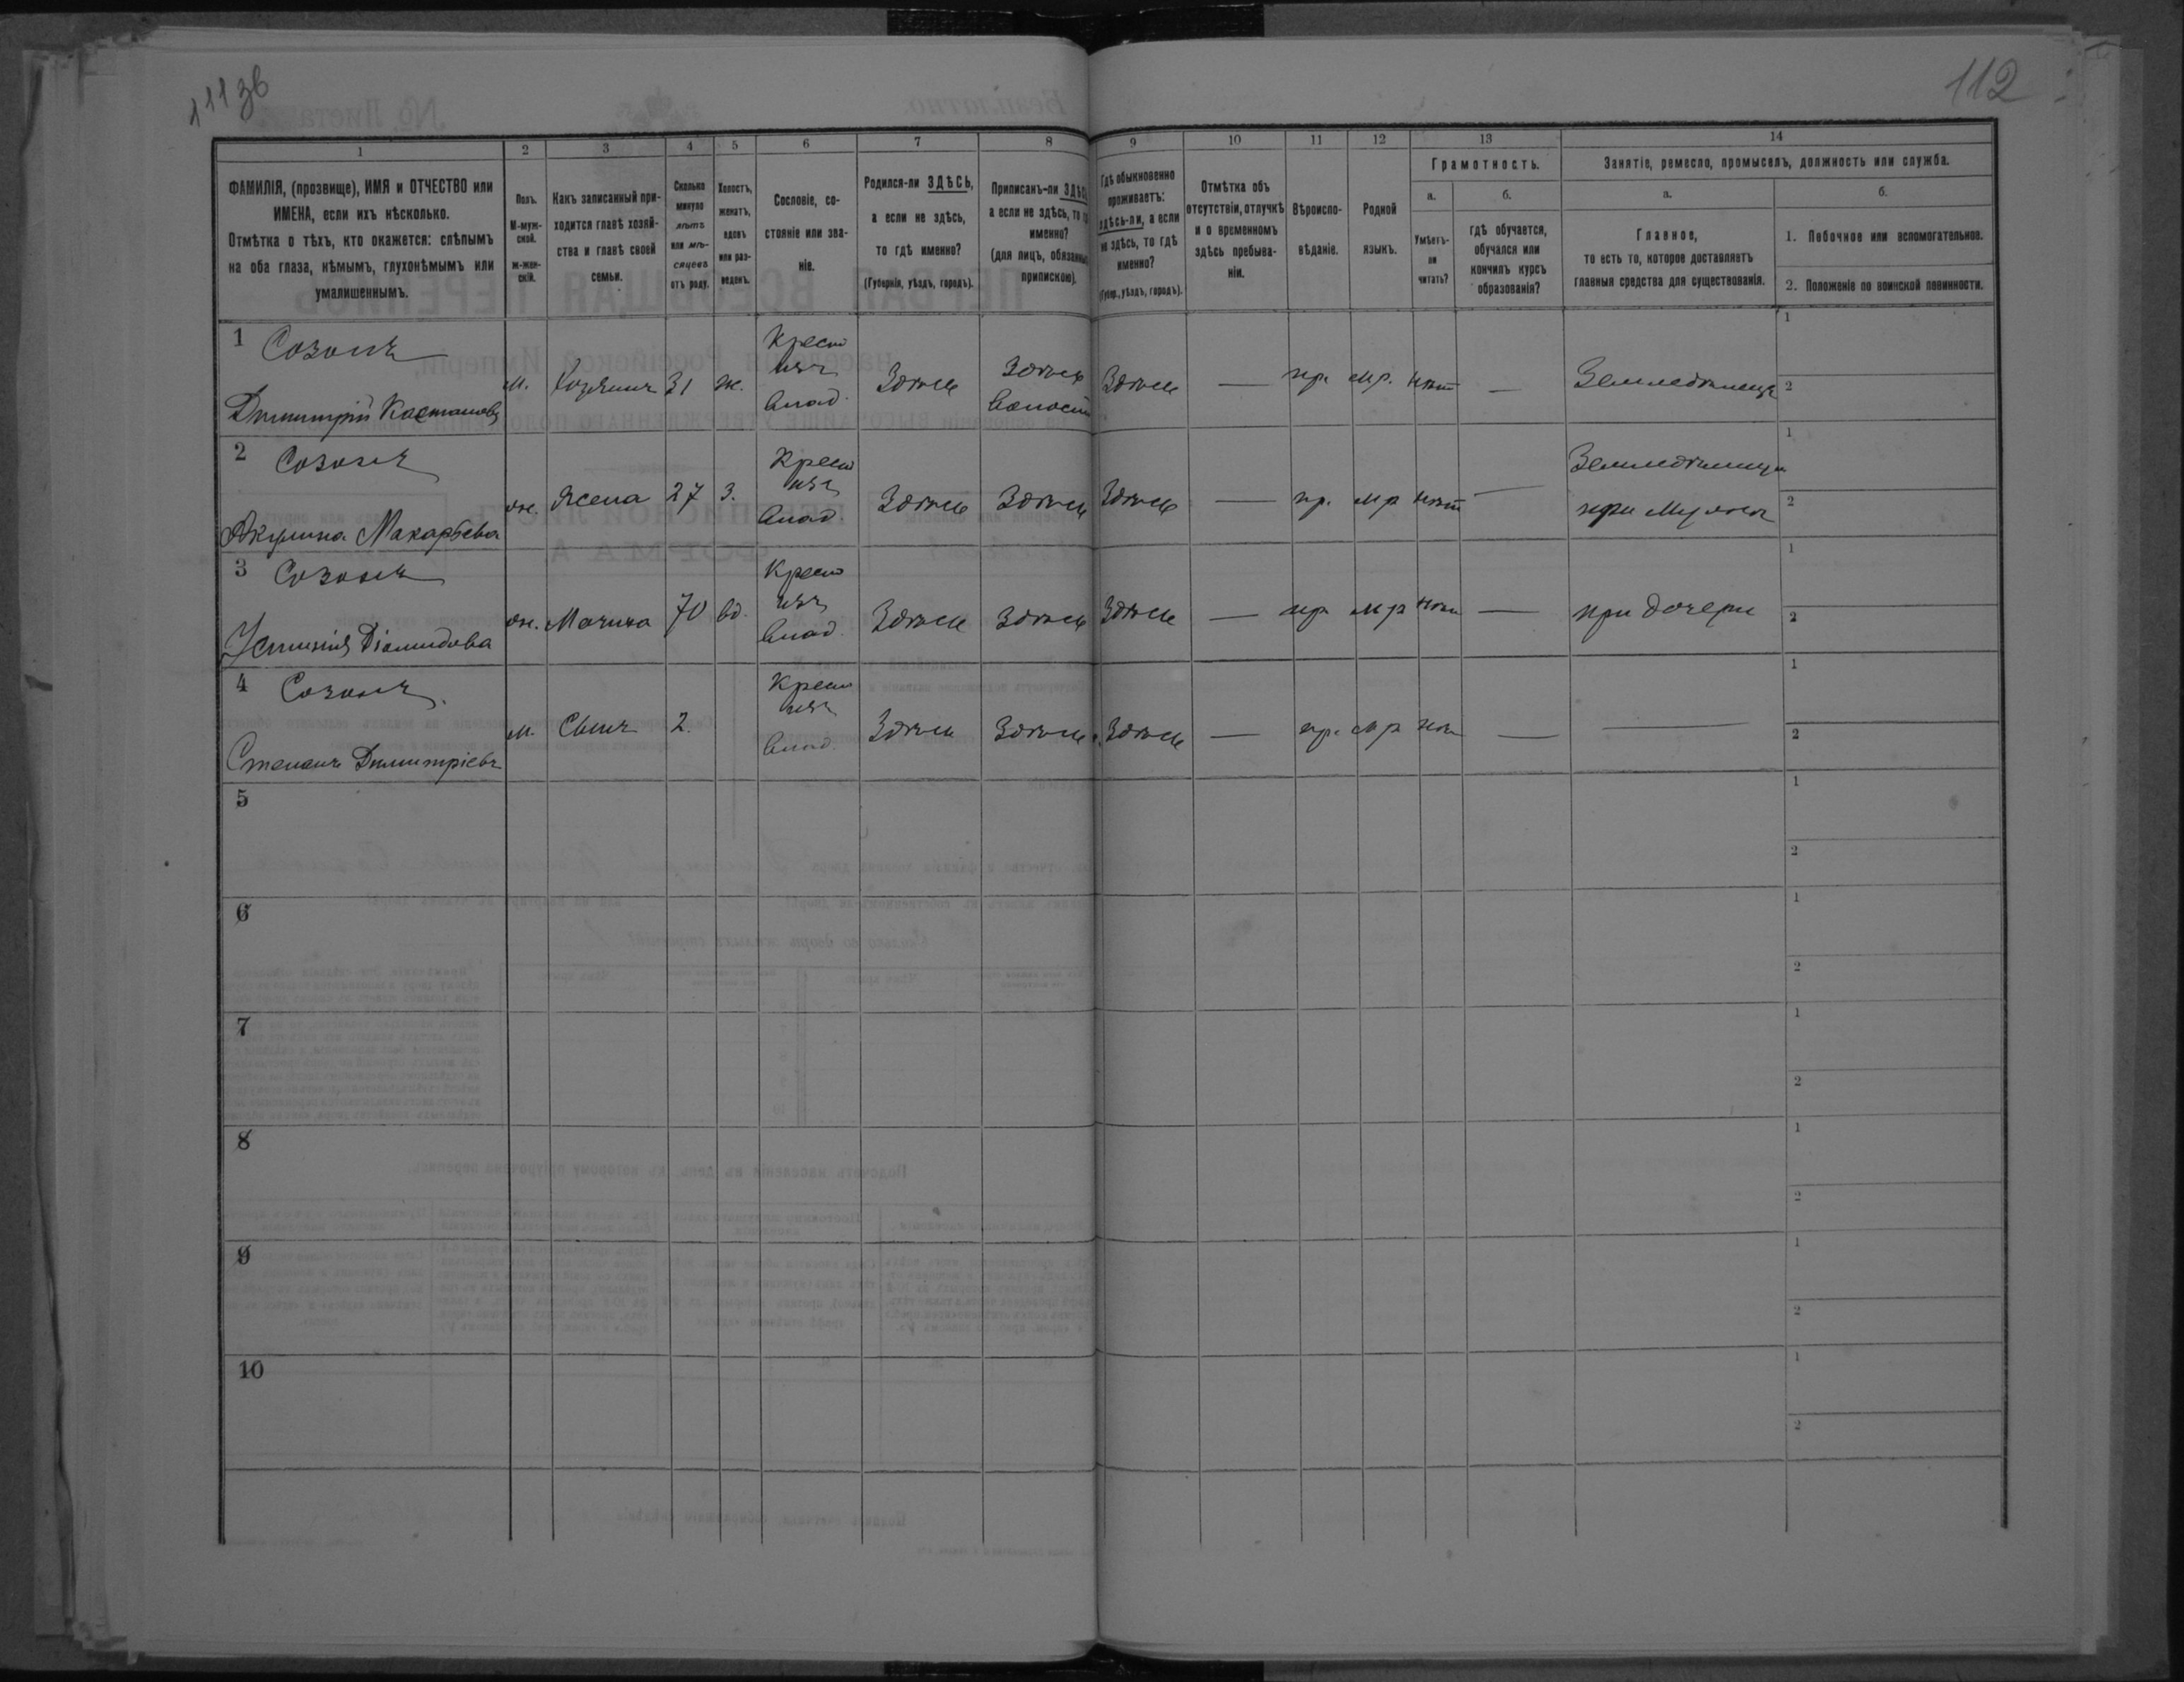 111 зв
112
1
2
3
4
5
6
7
8
9
10
11
12
13
14
ФАМИЛІЯ, (прозвище), ИМЯ и ОТЧЕСТВО или
ИМЕНА, если ихъ нѣсколько.
Отмѣтка о тѣхъ, кто окажется: слѣпымъ
на оба глаза, нѣмымъ, глухонѣмымъ или
умалишеннымъ.
Полъ.
М-муж-
ской.
ж-жен-
скій.
Какъ записанный при-
ходится главѣ хозяй-
ства и главѣ своей
семьи.
Сколько
минуло
лѣтъ
или мѣ-
сяцевъ
отъ роду.
Холостъ,
женатъ,
вдовъ
или раз-
веденъ.
Сословіе, со-
стояніе или зва-
ніе.
Родился-ли ЗДѢСЬ,
а если не здѣсь,
то гдѣ именно?
(Губернія, уѣздъ, городъ).
Приписанъ-ли ЗДѢСЬ,
а если не здѣсь, то гдѣ
именно?
(для лицъ, обязанныхъ
припискою).
Гдѣ обыкновенно
проживаетъ:
здѣсь-ли, а если
не здѣсь, то гдѣ
именно?
(Губер., уѣздъ, городъ).
Отмѣтка объ
отсутствіи, отлучкѣ
и о временномъ
здѣсь пребыва-
ніи.
Вѣроиспо-
вѣданіе.
Родной
языкъ.
Грамотность.
а.
Умѣетъ-
ли
читать?
б.
гдѣ обучается,
обучался или
кончилъ курсъ
образованія?
Занятіе, ремесло, промыселъ, должность или служба.
а.
Главное,
то есть то, которое доставляетъ
главныя средства для существованія.
б.
1. Побочное или вспомогательное.
2. Положеніе по воинской повинности.
1 Созонъ
Димитрій
м. Хозяинъ 31 ж.
Крест
влад.
Здѣсь
Здѣсь
Волости
Здѣсь — пр. мр. нѣт — Земледѣлецъ
1
2
2 Созонъ
Акулина Макарьева
жн. Жена 27 З.
Крест
влад.
Здѣсь Здѣсь Здѣсь — пр. мр нѣт —
Земледѣлица
при Мужѣ
1
2
3 Созонъ
Устинія Діомидова
жн. 70 вд.
Крест
влад.
Здѣсь Здѣсь Здѣсь — пр мр нѣт — при дочери
1
2
4 Созонъ
Степанъ Димитріевъ
м. Сынъ 2.
Крест
влад.
Здѣсь Здѣсь Здѣсь — пр. мр нѣт — —
1
2
5
1
2
6
1
2
7
1
2
8
1
2
9
1
2
10
1
2